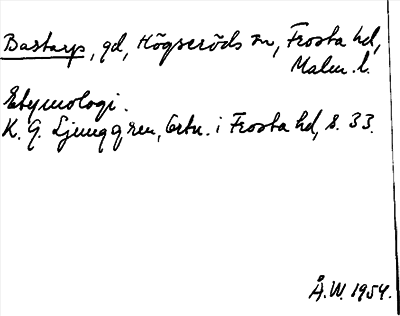 Bastarp, gd, Högseröds sn, Frosta hd,
Malm. l.
Etymologi.
K. G. Ljunggren, Ortn. i Frosta hd, s. 33.
Å.W. 1954.